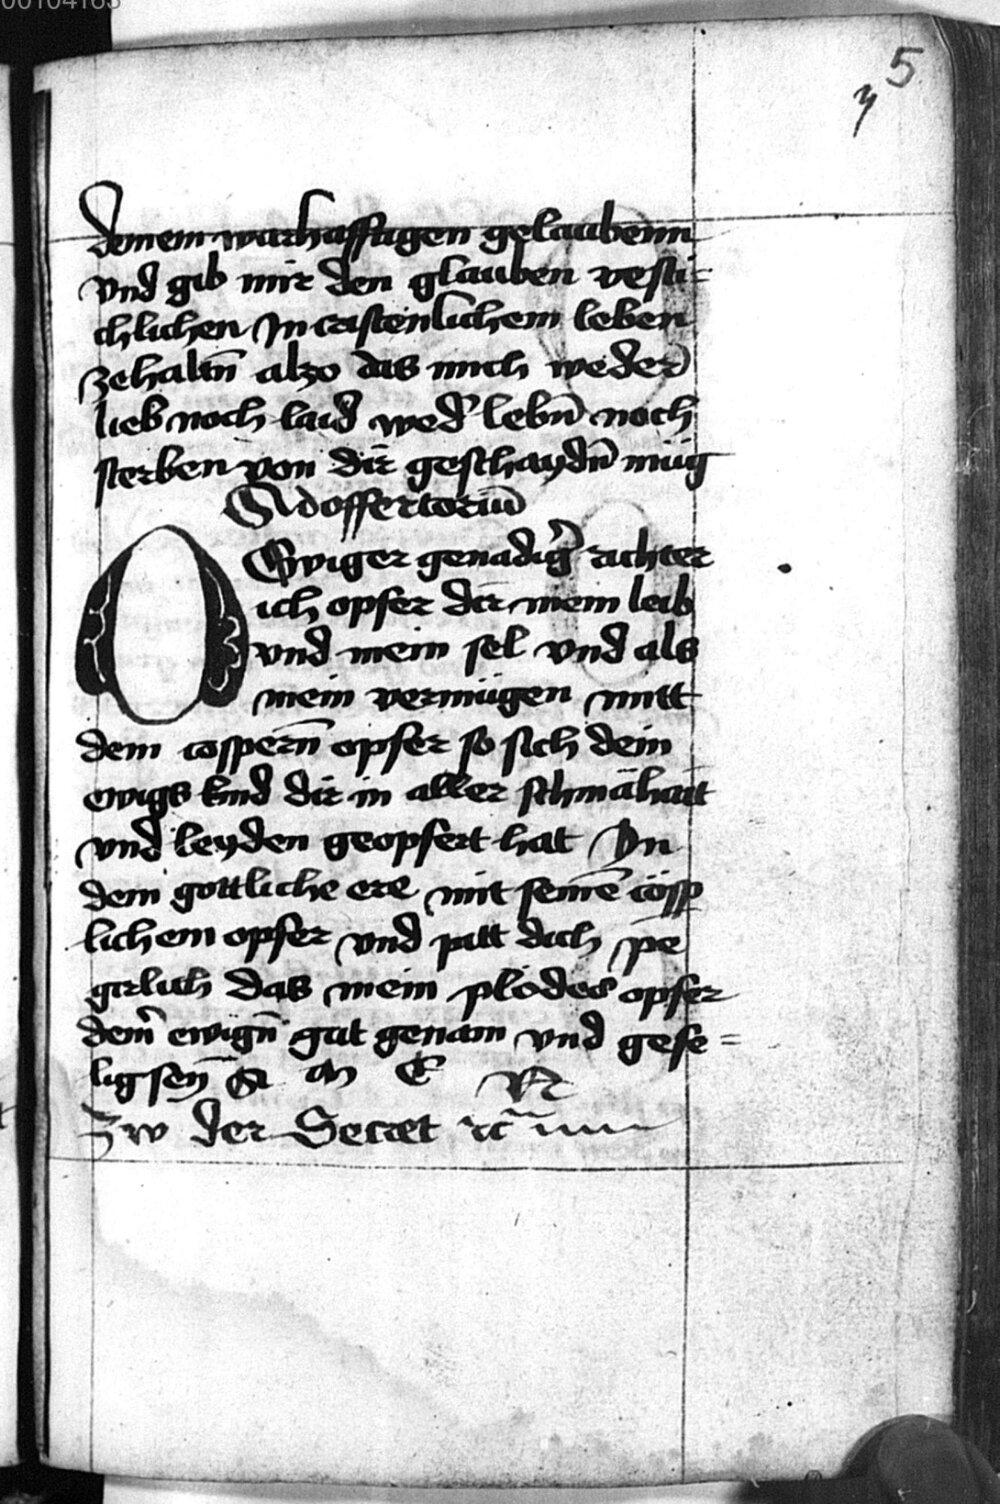 00104163
5
deinem warhafftigen gelaubenn
vnd gib mir den glauben vesti=
chlichen In cristenlichem leben
zehaltn̄ alzo das mich weder
lieb noch laid wed' lebn̄ noch
sterben von dir geschaydn̄ müg
Ad offertoriū
O Ewiger genadig' richter
ich opfer dir mein leib
vnd mein sel vnd als
mein vermügen mitt
dem cospern̄ opfer so sich dein
ewigs kind dir in aller schmāhait
vnd leyden geopfert hat Yn
dem gottliche ere mit seinē cösp
lichem opfer vnd pitt dich pe
girlich das mein plödes opfer
dem̄ ewign̄ gut genam vnd gefe=
lig sey
Zw der Secret